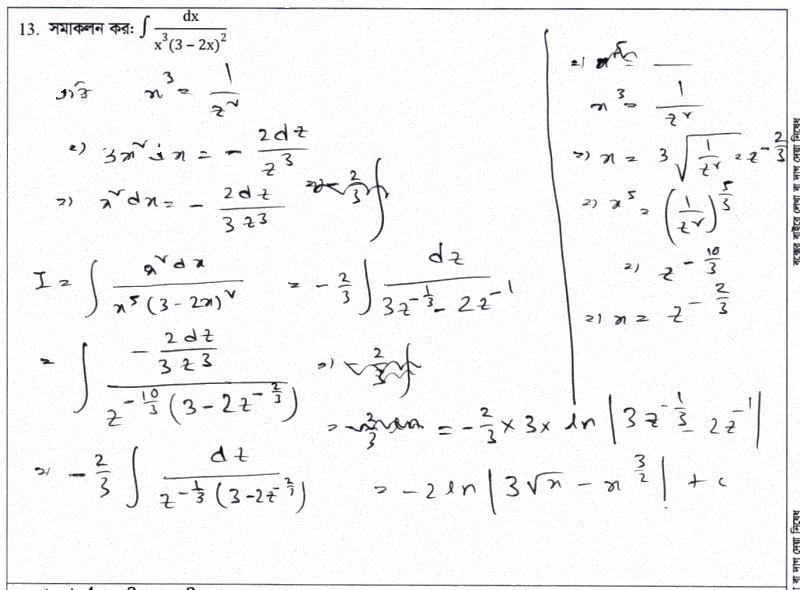 13. সমাকলন কর: ∫ dx / x³(3 – 2x)²
ধরি x³ = 1/z²
⇒ 3x² dx = - 2dz/z³
⇒ x² dx = - 2dz/3z³
I = ∫ x² dx / x⁵(3-2x)²
= ∫ (- 2dz/3z³) / z^(-10/3) (3-2z^(-2/3))
⇒ - 2/3 ∫ dz / z^(-1/3) (3-2z^(-2/3))
= - 2/3 ∫ dz / 3z^(-1/3) - 2z^(-1)
= - 2/3 × 3 × ln |3z^(-1/3) - 2z^(-1)|
= -2 ln |3√x - x^(3/2)| + c
x³ = 1/z²
⇒ x = 3√(1/z²) = z^(-2/3)
⇒ x⁵ = (1/z²)^(5/3)
⇒ z^(-10/3)
⇒ x = z^(-2/3)
বক্সের বাইরে লেখা বা দাগ দেয়া নিষেধ
বা দাগ দেয়া নিষেধ